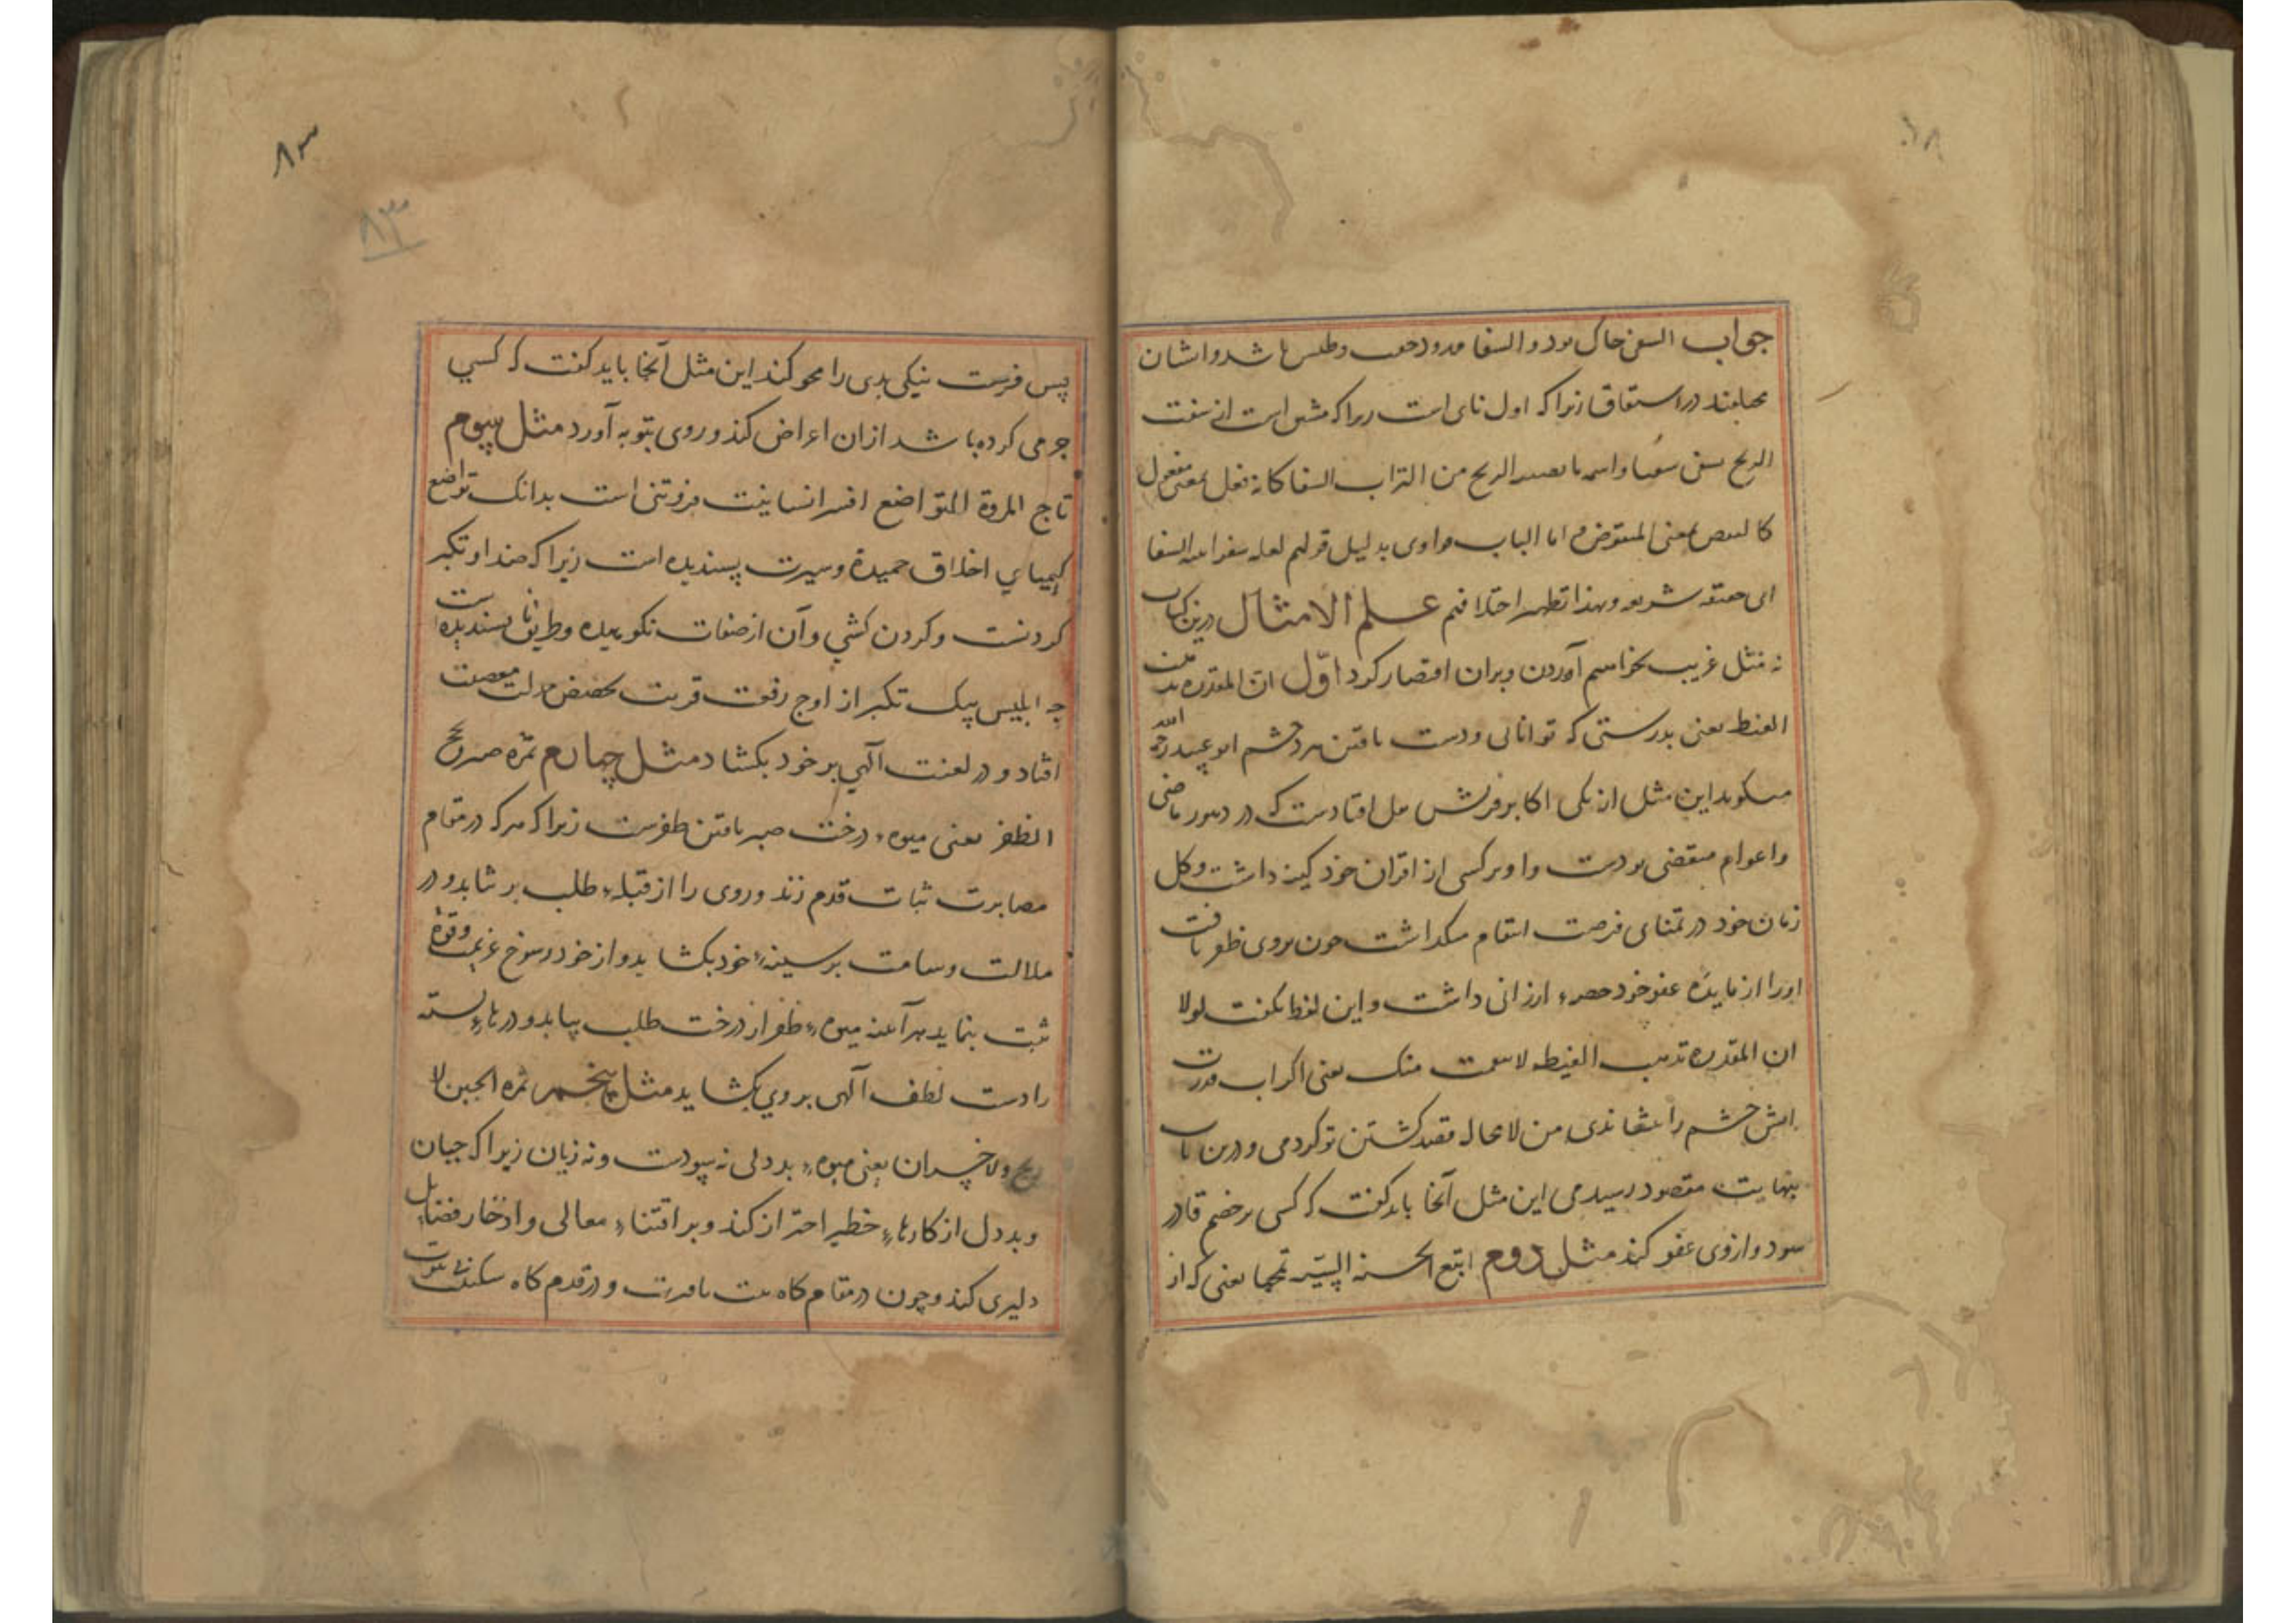 جواب السفی خاک بود و السفا ممدود خفت و طیش باشد و ایشان
مختلفند در اشتقاق زیرا که اول یائی است زیراکه مشتق است از سفت
الریح تسفی سفیا و اسم ما تصیبه الریح من التراب السفا کانه فعل بمعنی مفعول
کالنقض بمعنی المنقوض و اما الباب واوی بدلیل قولهم بغلة سفواء السفا
ای خفیفة سریعة وبهذا تظهر اختلافهم علم الامثال درین کتاب
نه مثل غریب خواهیم آوردن وبران اقتصار کرد اوّل ان المقدرة تذهب
الغیظ یعنی بدرستی که توانائی و دست یافتن برد خشم ابو عبید رحمه الله
میگوید این مثل از یکی اکابر قریش مثل افتادست که در دهور ماضی
واعوام منقضی بودست و او بر کسی از اقران خود کینه داشت وکل
زمان خود در تمنای فرصت انتقام میگذاشت چون بروی ظفر یافت
اورا از مایدهٔ عفو خود حصهٔ ارزانی داشت و این لفظ بگفت لولا
ان المقدرة تذهب الغیظ لانتقمت منک یعنی اگر آب قدرت
آتش خشم را ننشاندی من لامحال قصد کشتن تو کردمی و درین باب
بنهایت مقصود رسیدمی این مثل آنجا باید گفت که کسی بر خصم قادر
شود و ازوی عفو کند مثل دوم اتبع الحسنة السیئة تمحها یعنی که از
۸۳
۸۳
پس فرست نیکی بدی را محو کند این مثل آنجا باید گفت که کسي
جرمی کرده باشد ازان اعراض کند و روی بتوبه آورد مثل سیوم
تاج المروة التواضع افسر انسانیت فروتنی است بدانک تواضع
کیمیاي اخلاق حمیدة وسیرت پسندیده است زیراکه ضد او تکبر
کردنست و کردن کشي و آن از صفات نکوهیده و طریق ناپسندیده است
چه ابلیس بیک تکبر از اوج رفعت قربت بحضیض مذلت معصیت
افتاد و در لعنت آلهي بر خود بکشاد مثل چهارم ثمرة صبر نجح
الظفر یعنی میوهٔ درخت صبر یافتن ظفرست زیراکه هرکه در مقام
مصابرت ثبات قدم زند و روی را از قبلهٔ طلب بر نتابد و در
ملالت وسامت بر سینهٔ خود بکشاید و از خود رسوخ عزیمت وقوة
ثبت بنماید هرآینه میوهٔ ظفر از درخت طلب بیابد و درهاي بسته
را دست لطف آلهی بر وي بکشاید مثل پنجم ثمره الجبن لا
ربح ولا خسران یعنی میوهٔ بد دلی نه سودست ونه زیان زیراکه جبان
وبد دل از کارهاي خطیر احتراز کند و بر اقتناي معالی وادخار فضایل
دلیری کند وچون در مقام کاه